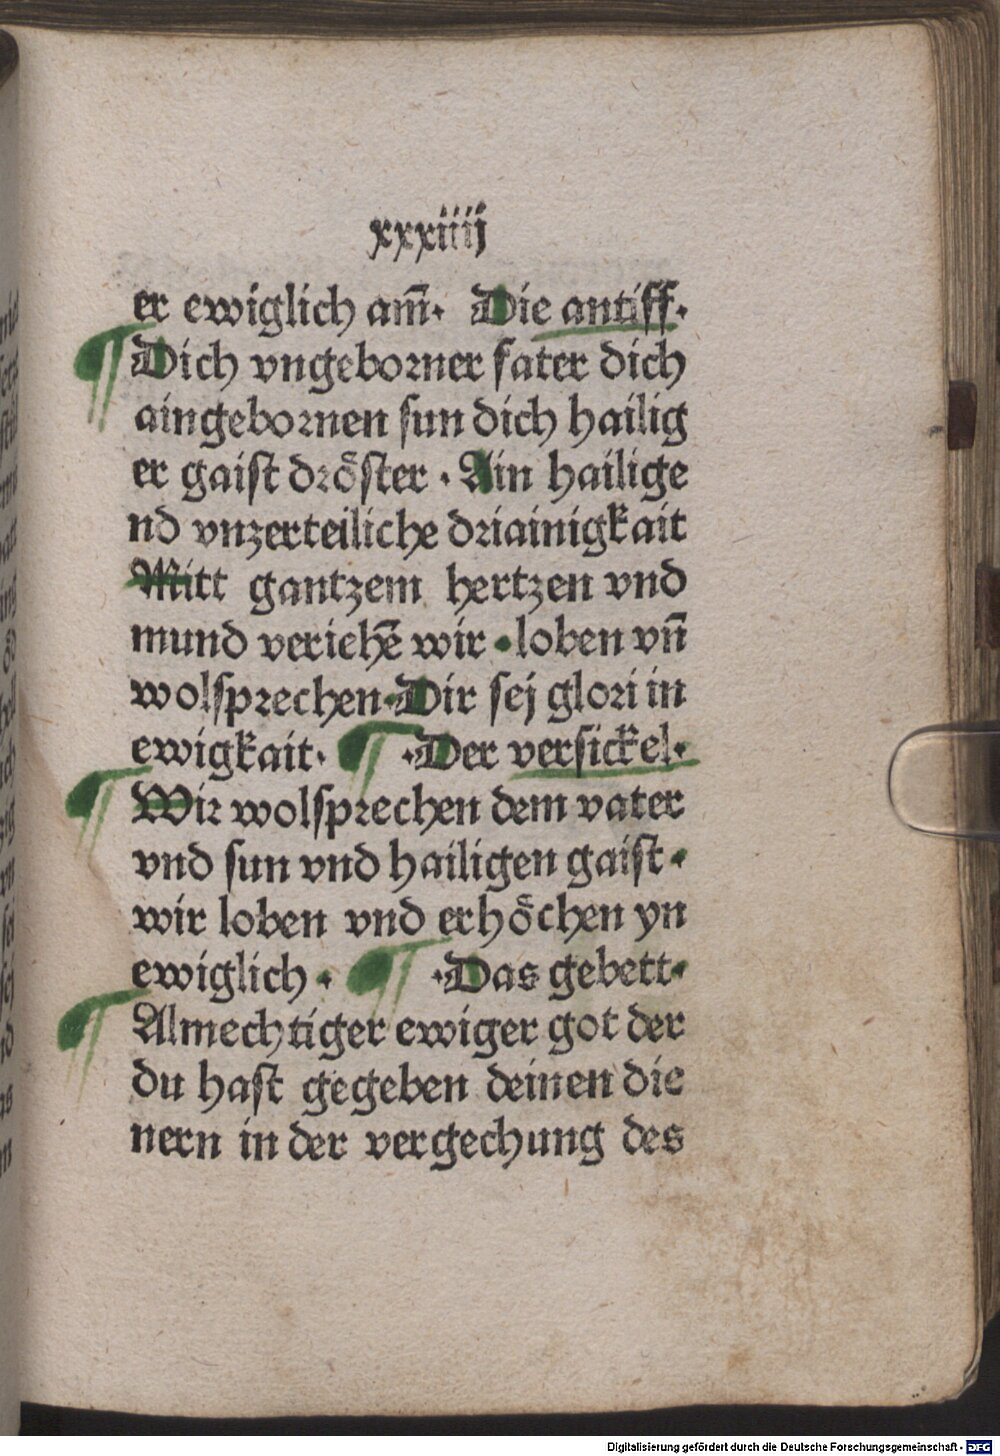 xxxiiij
er ewiglich am̄· Die antiff·
¶ Dich vngeborner fater dich
aingebornen sun dich hailig
er gaist dröster · Ain hailige
nd vnzerteiliche driainigkait
Mitt gantzem hertzen vnd
mund veriehē wir · loben vn̄
wolsprechen· Dir sej glori in
ewigkait· ¶ ·Der versickel·
¶ Wir wolsprechen dem vater
vnd sun vnd hailigen gaist ·
wir loben vnd erhöchen yn
ewiglich · ¶ ·Das gebett·
¶ Almechtiger ewiger got der
du hast gegeben deinen die
nern in der vergechung des
Digitalisierung gefördert durch die Deutsche Forschungsgemeinschaft - DFG